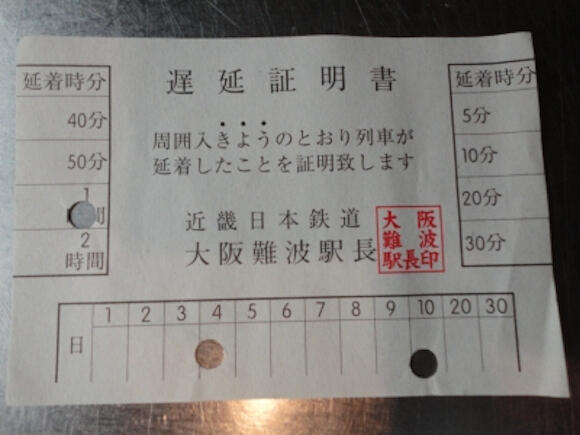 遅延証明書
延着時分
40分
50分
1
間
2
時間
周囲入きようのとおり列車が
延着したことを証明致します
近畿日本鉄道
大阪難波駅長
大阪
難波
駅長印
延着時分
5分
10分
20分
30分
日 1 2 3 4 5 6 7 8 9 10 20 30